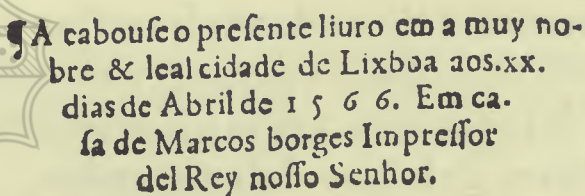 ¶A cabouſe o preſente liuro em a muy no-
bre & leal cidade de Lixboa aos.xx.
dias de Abril de 1 5 6 6. Em ca.
ſa de Marcos borges Impreſſor
del Rey noſſo Senhor.